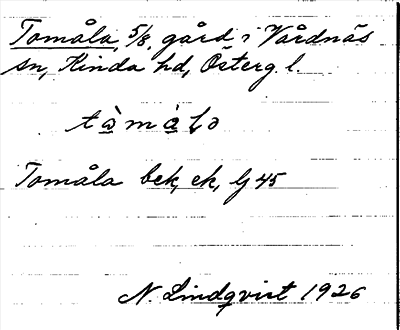 Tomåla, 5/8, gård i Vårdnäs
sn, Kinda hd, Österg. l.
tòmàlə
Tomåla bek, ek, lj 45
N. Lindqvist 1926